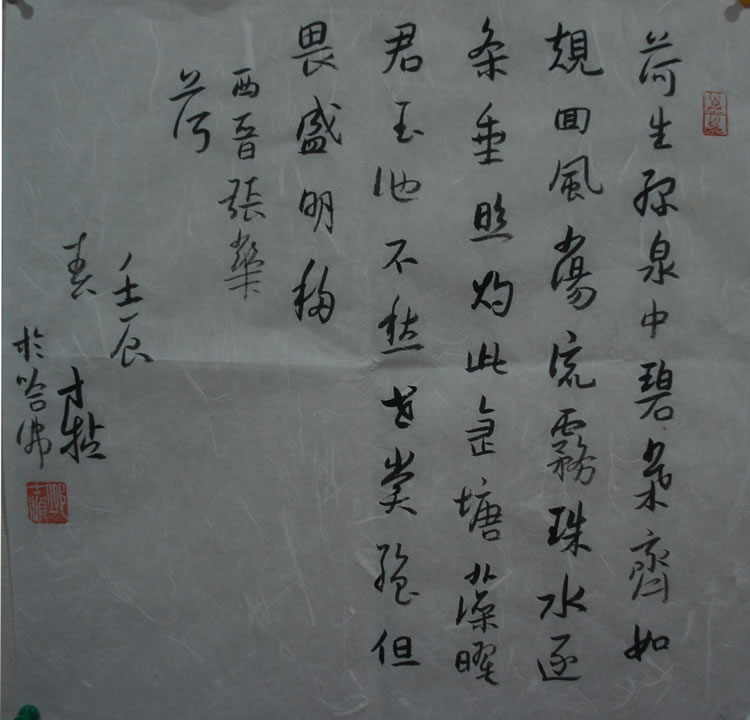 荷生緑泉中碧葉齊如
規囬風蕩流霧珠水逐
条垂照灼此金塘藻曜
君玉池不愁世賞絶但
畏盛明移
西晋張華
荷
壬辰
春
於哈佛